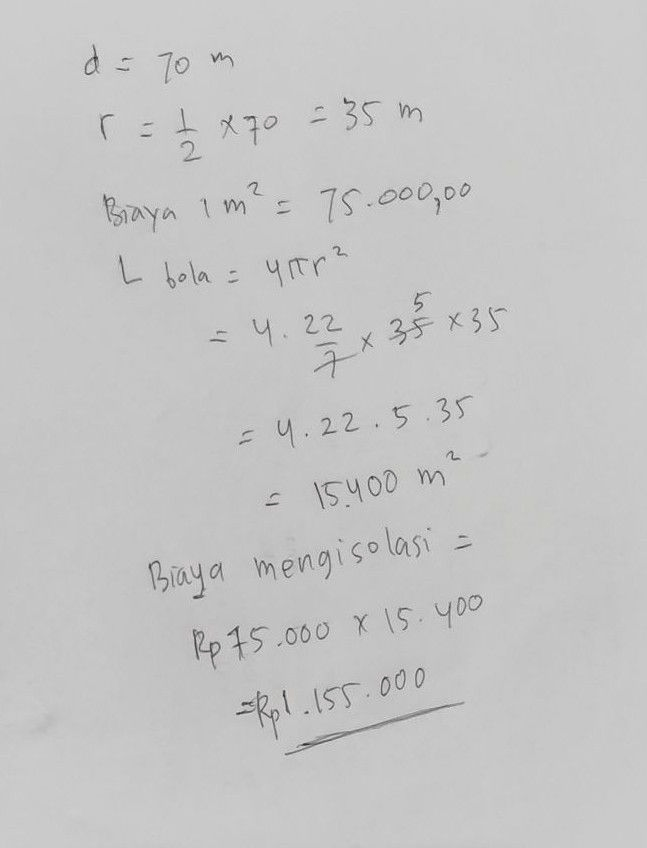 d = 70 m
r = 1/2 × 70 = 35 m
Biaya 1 m² = 75.000,00
L bola = 4πr²
= 4 . 22/7 × 35 5 × 35
= 4 . 22 . 5 . 35
= 15.400 m²
Biaya mengisolasi =
Rp75.000 × 15.400
=Rp1.155.000